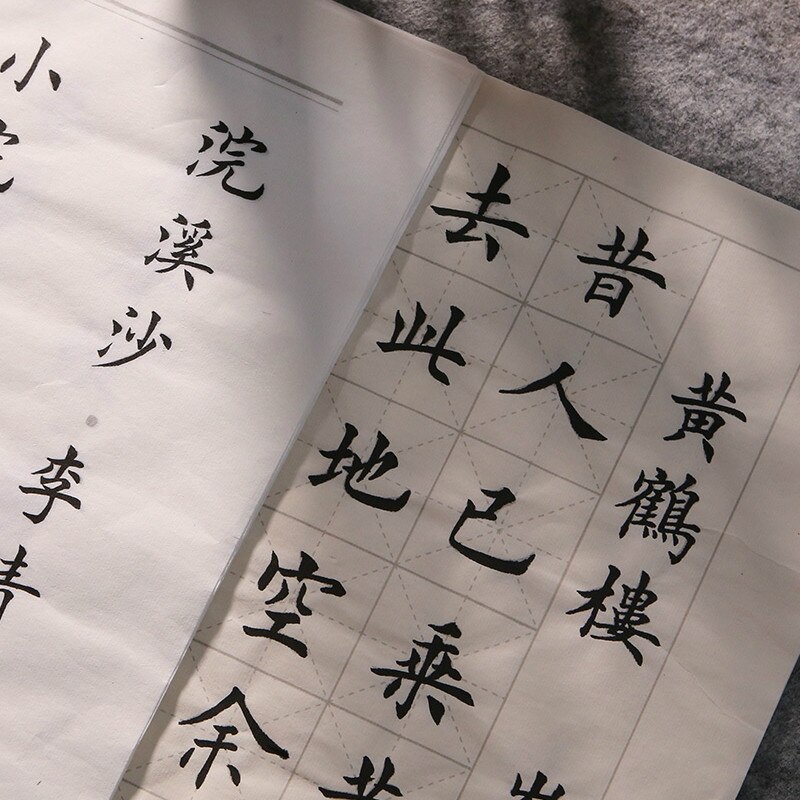 黄鶴樓
昔人已乘黄
去此地空余
浣溪沙·李清
小院